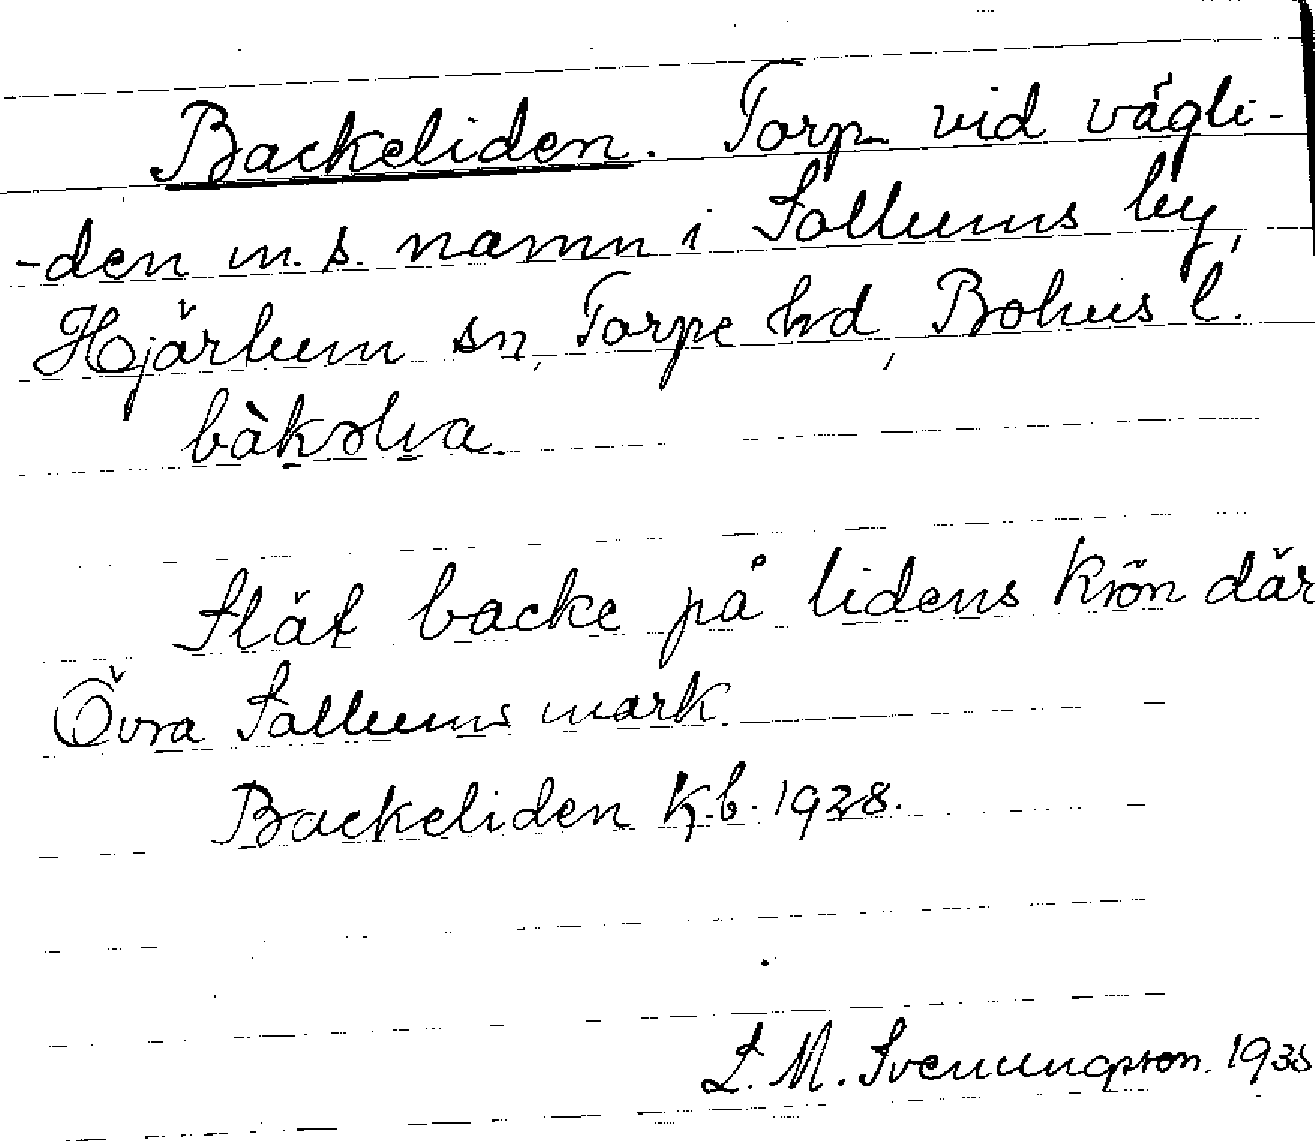 Backeliden. Torp vid vägli-
-den m. s. namn i Sollums by,
Hjärtum sn, Torpe hd, Bohus l.
Slät backe på lidens krön där
Övra Sollums mark.
Backeliden K.b. 1928.
L. M. Svenungsson. 1935